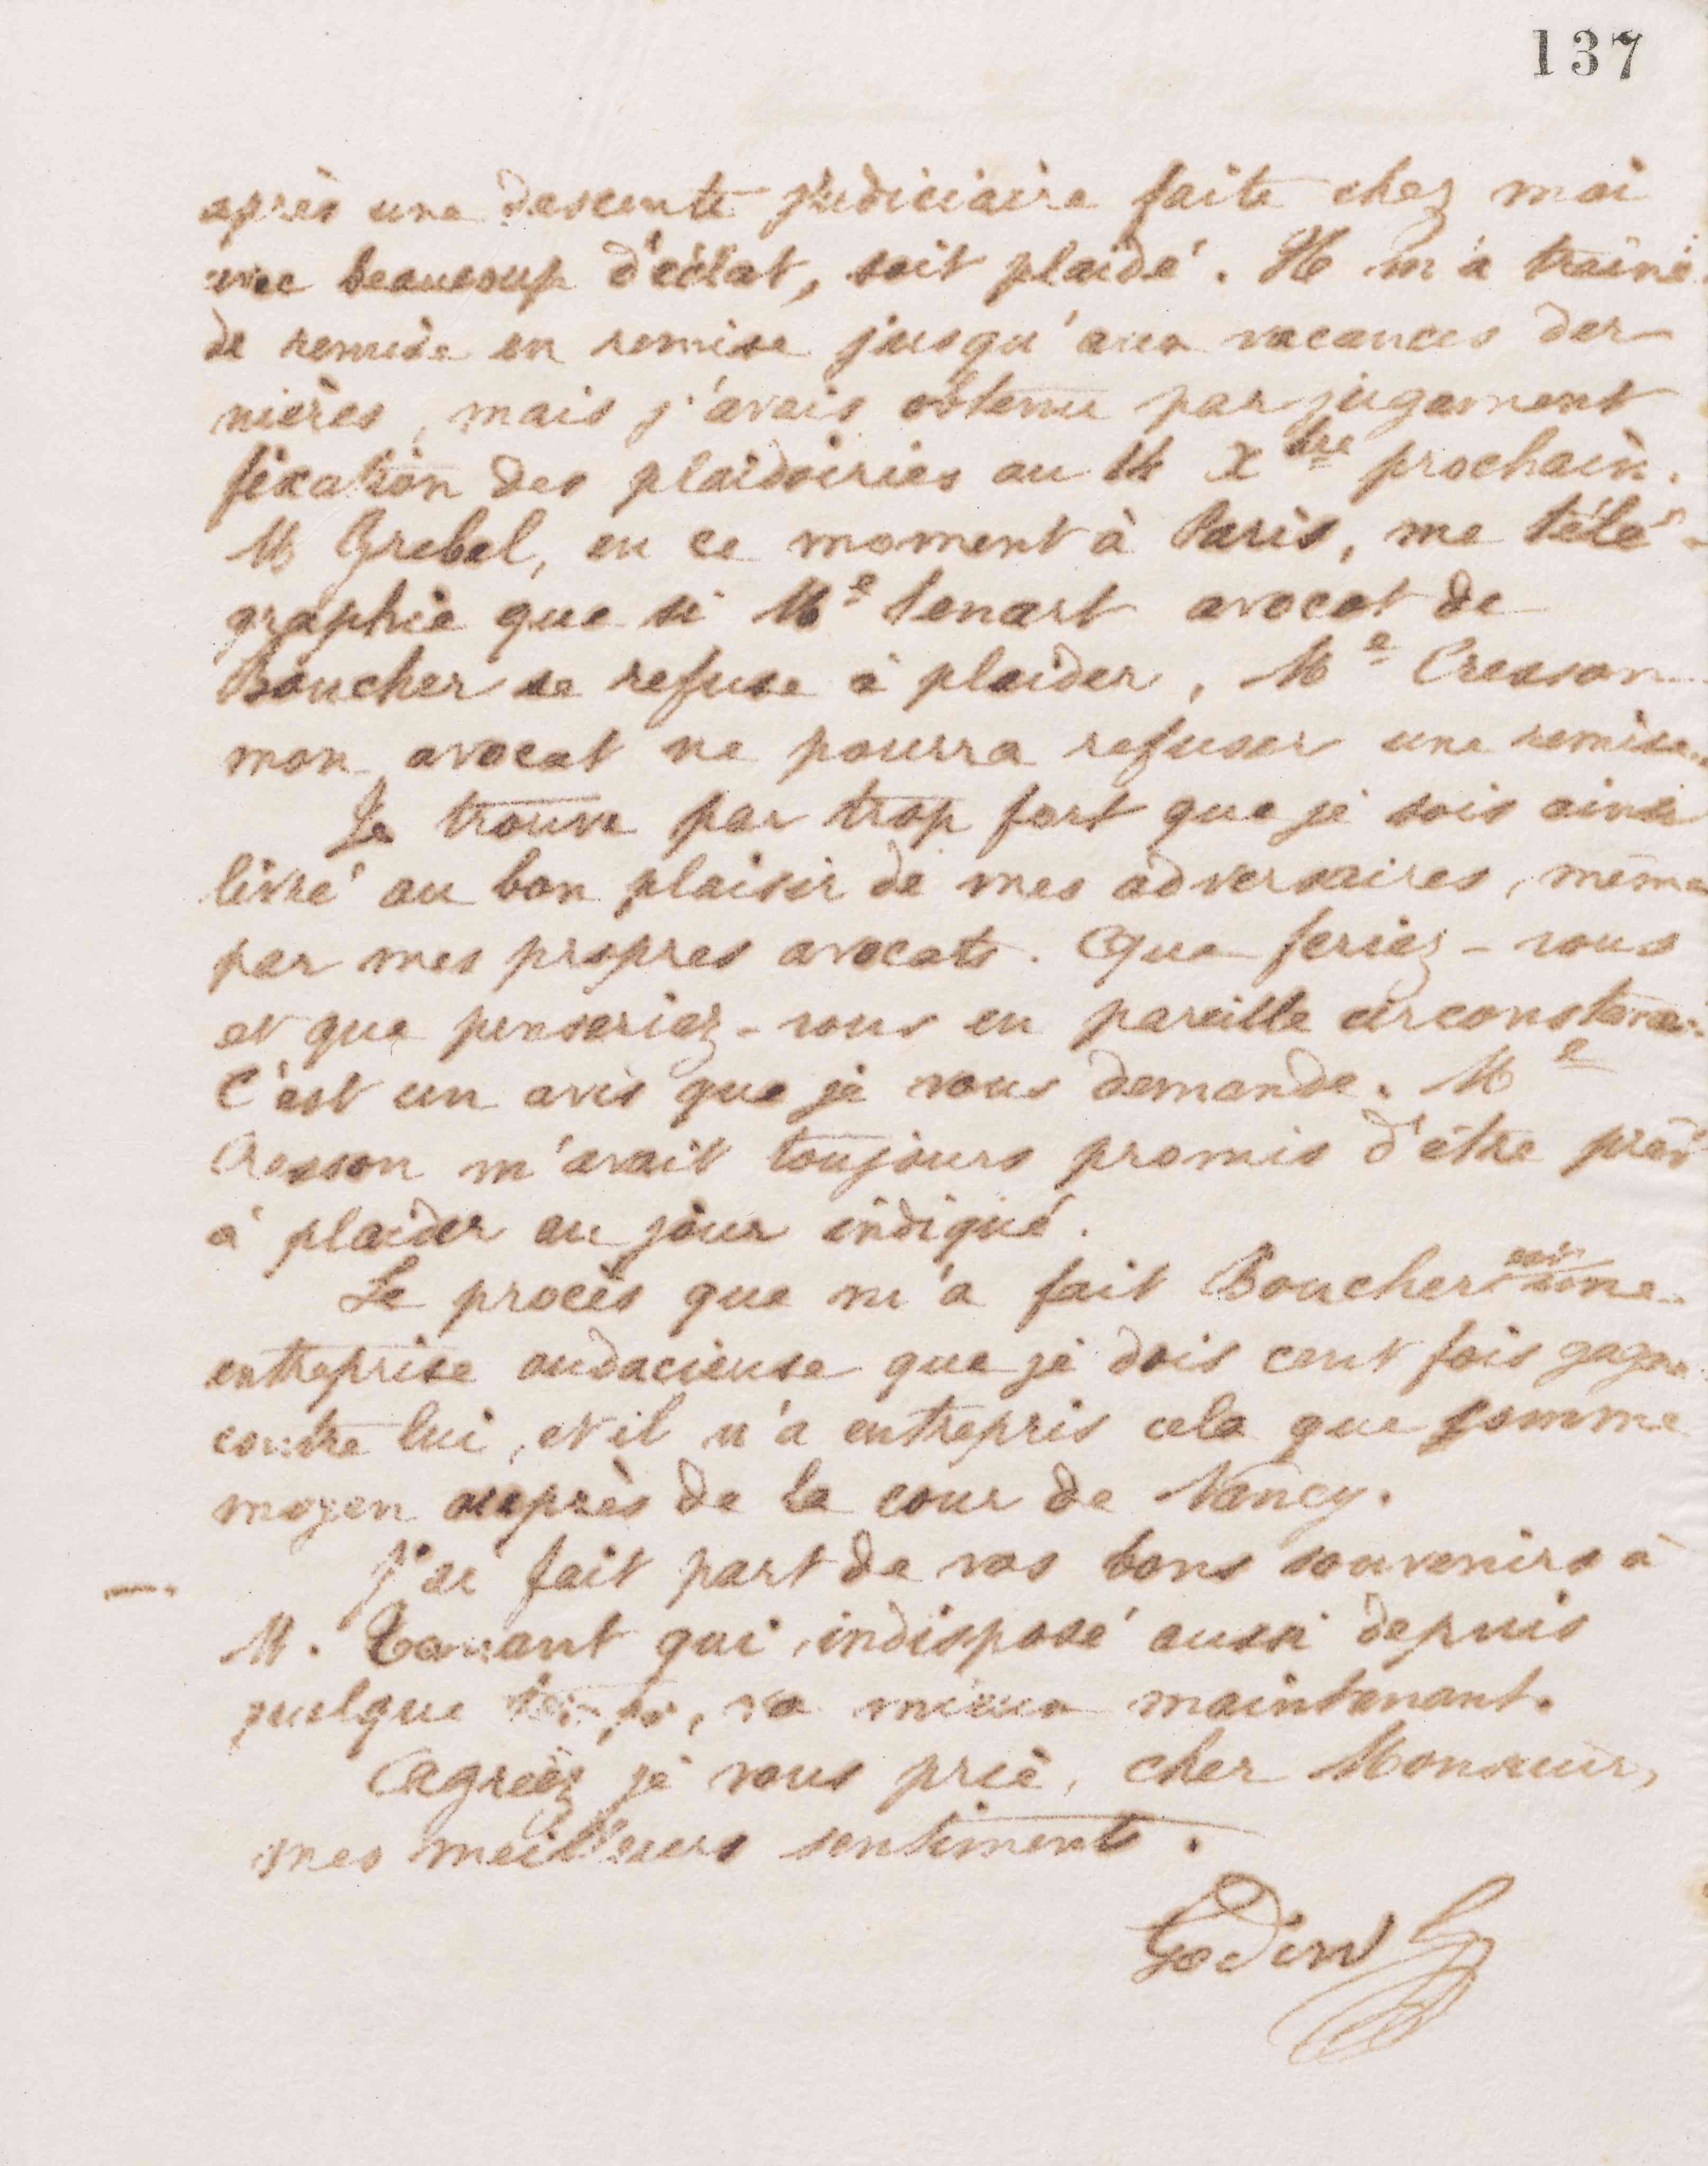 137
après une descente judiciaire faite chez moi
avec beaucoup d'éclat, soit plaidé. Il m'a traîné
de remise en remise jusqu'aux vacances der-
nières, mais j'avais obtenu par jugement
fixation des plaidoiries au 14 Xbre prochain.
M Grebel, en ce moment à Paris, me télé-
graphie que si Me Senart avocat de
Boucher se refuse à plaider, Me Cresson
mon avocat ne pourra refuser une remise.
Je trouve par trop fort que je sois ainsi
livré au bon plaisir de mes adversaires, même
par mes propres avocats. Que feriez-vous
et que penseriez-vous en pareille circonstance
C'est un avis que je vous demande. Me
Cresson m'avait toujours promis d'être prêt
à plaider au jour indiqué.
Le procès que m'a fait Boucher est une
entreprise audacieuse que je dois cent fois gagner
contre lui, et il n'a entrepris cela que comme
moyen auprès de la cour de Nancy.
J'ai fait part de vos bons souvenirs à
M. qui, indisposé aussi depuis
quelque temps, va mieux maintenant.
Agréez je vous prie, cher Monsieur,
mes meilleurs sentiments.
Godin